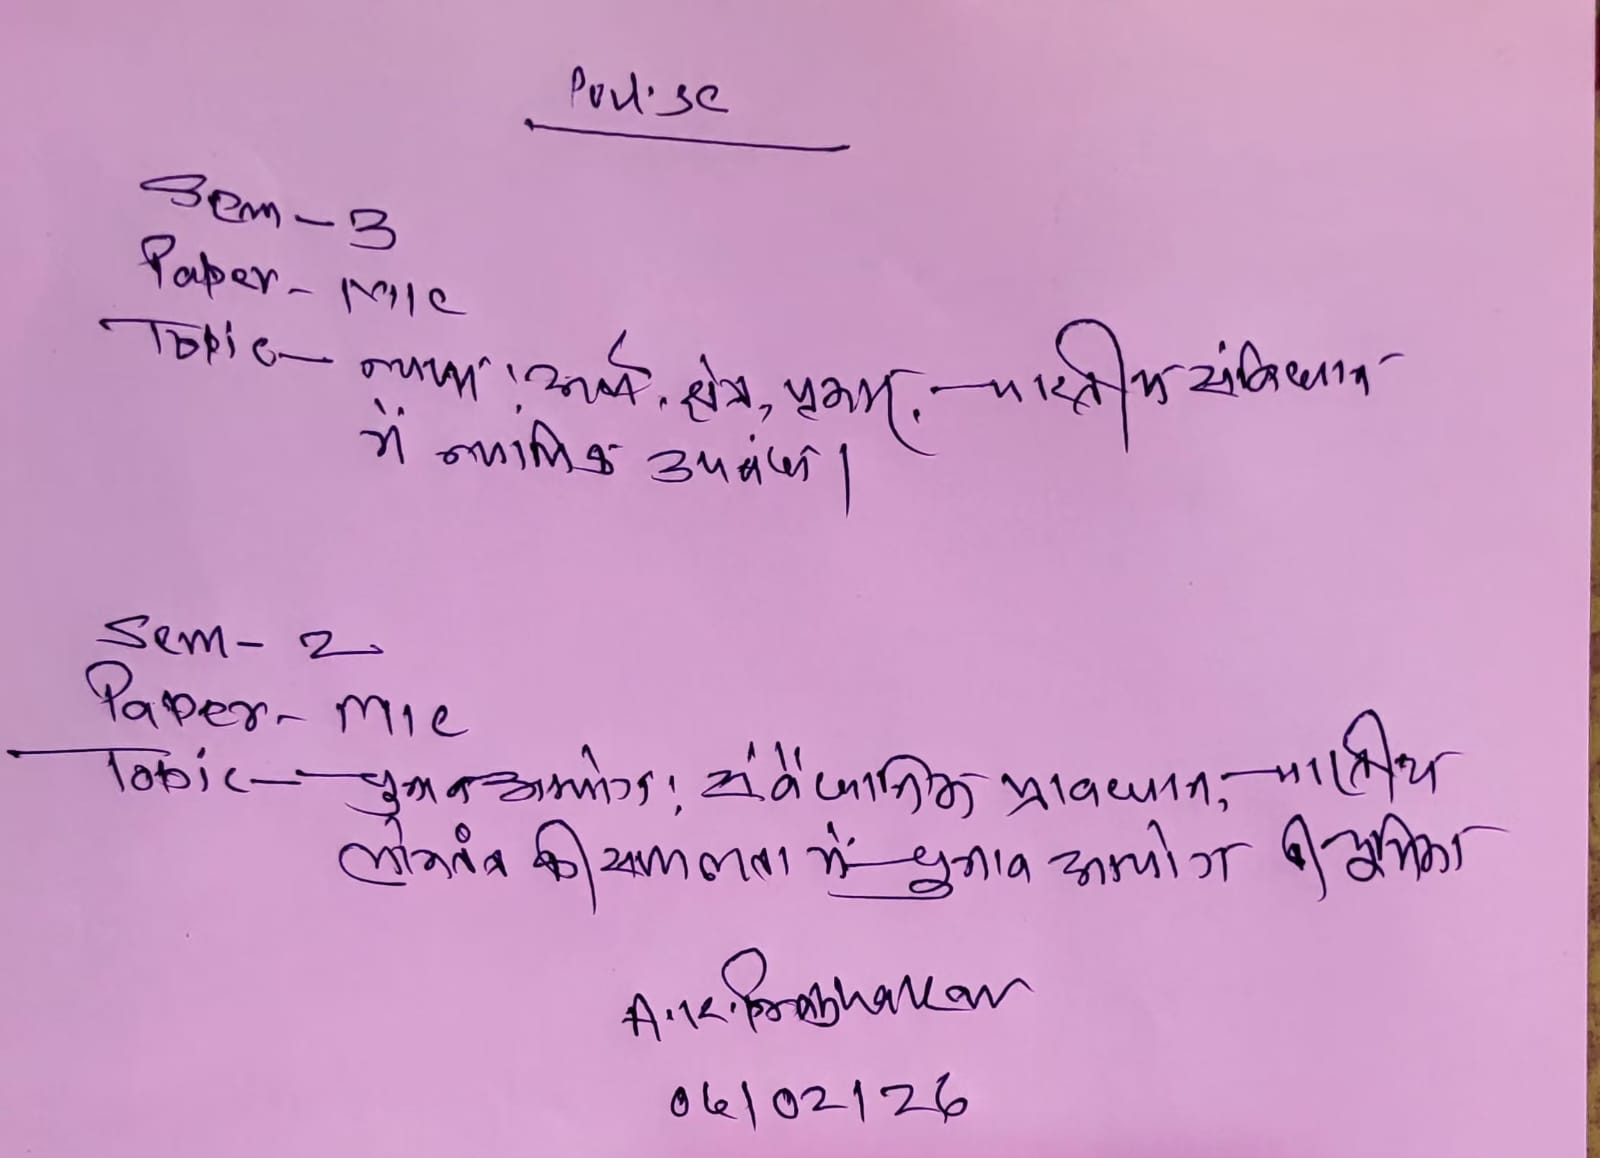 Poul.sc
Sem-3
Paper- MIC
Topic- न्याय : अर्थ, क्षेत्र, प्रकार, भारतीय संविधान
में न्यायिक उपबंध।
Sem- 2
Paper- MIC
Topic- चुनाव आयोग: संवैधानिक प्रावधान, भारतीय
लोकतंत्र की सफलता में चुनाव आयोग की भूमिका
A.K. Prabhakar
06/02/26